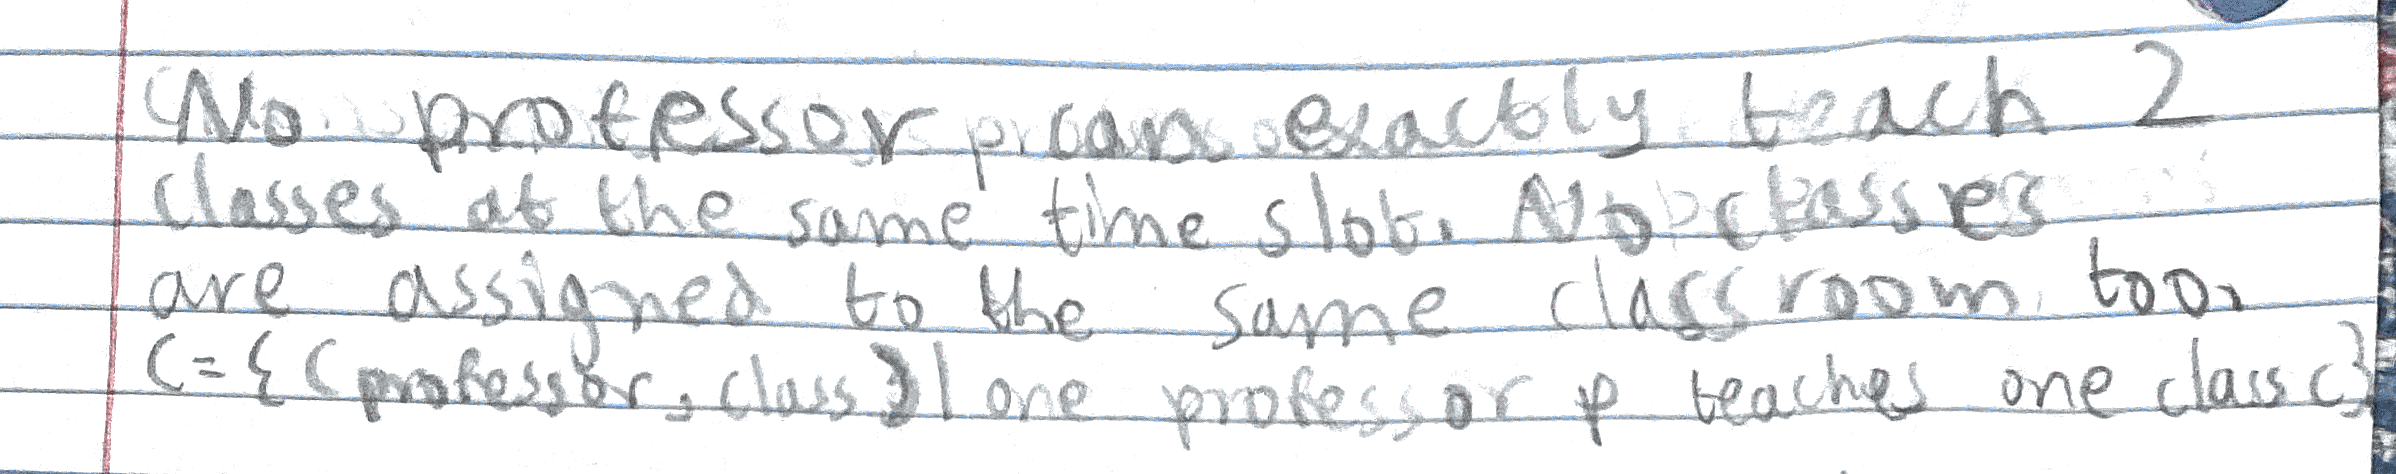 No professor can exactly teach 2
classes at the same time slot. No classes
are assigned to the same classroom too.
C = {(professor, class) | one professor p teaches one class c}